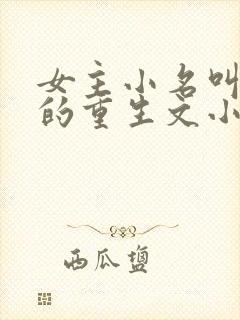 女主小名叫
的重生文小
西瓜盐